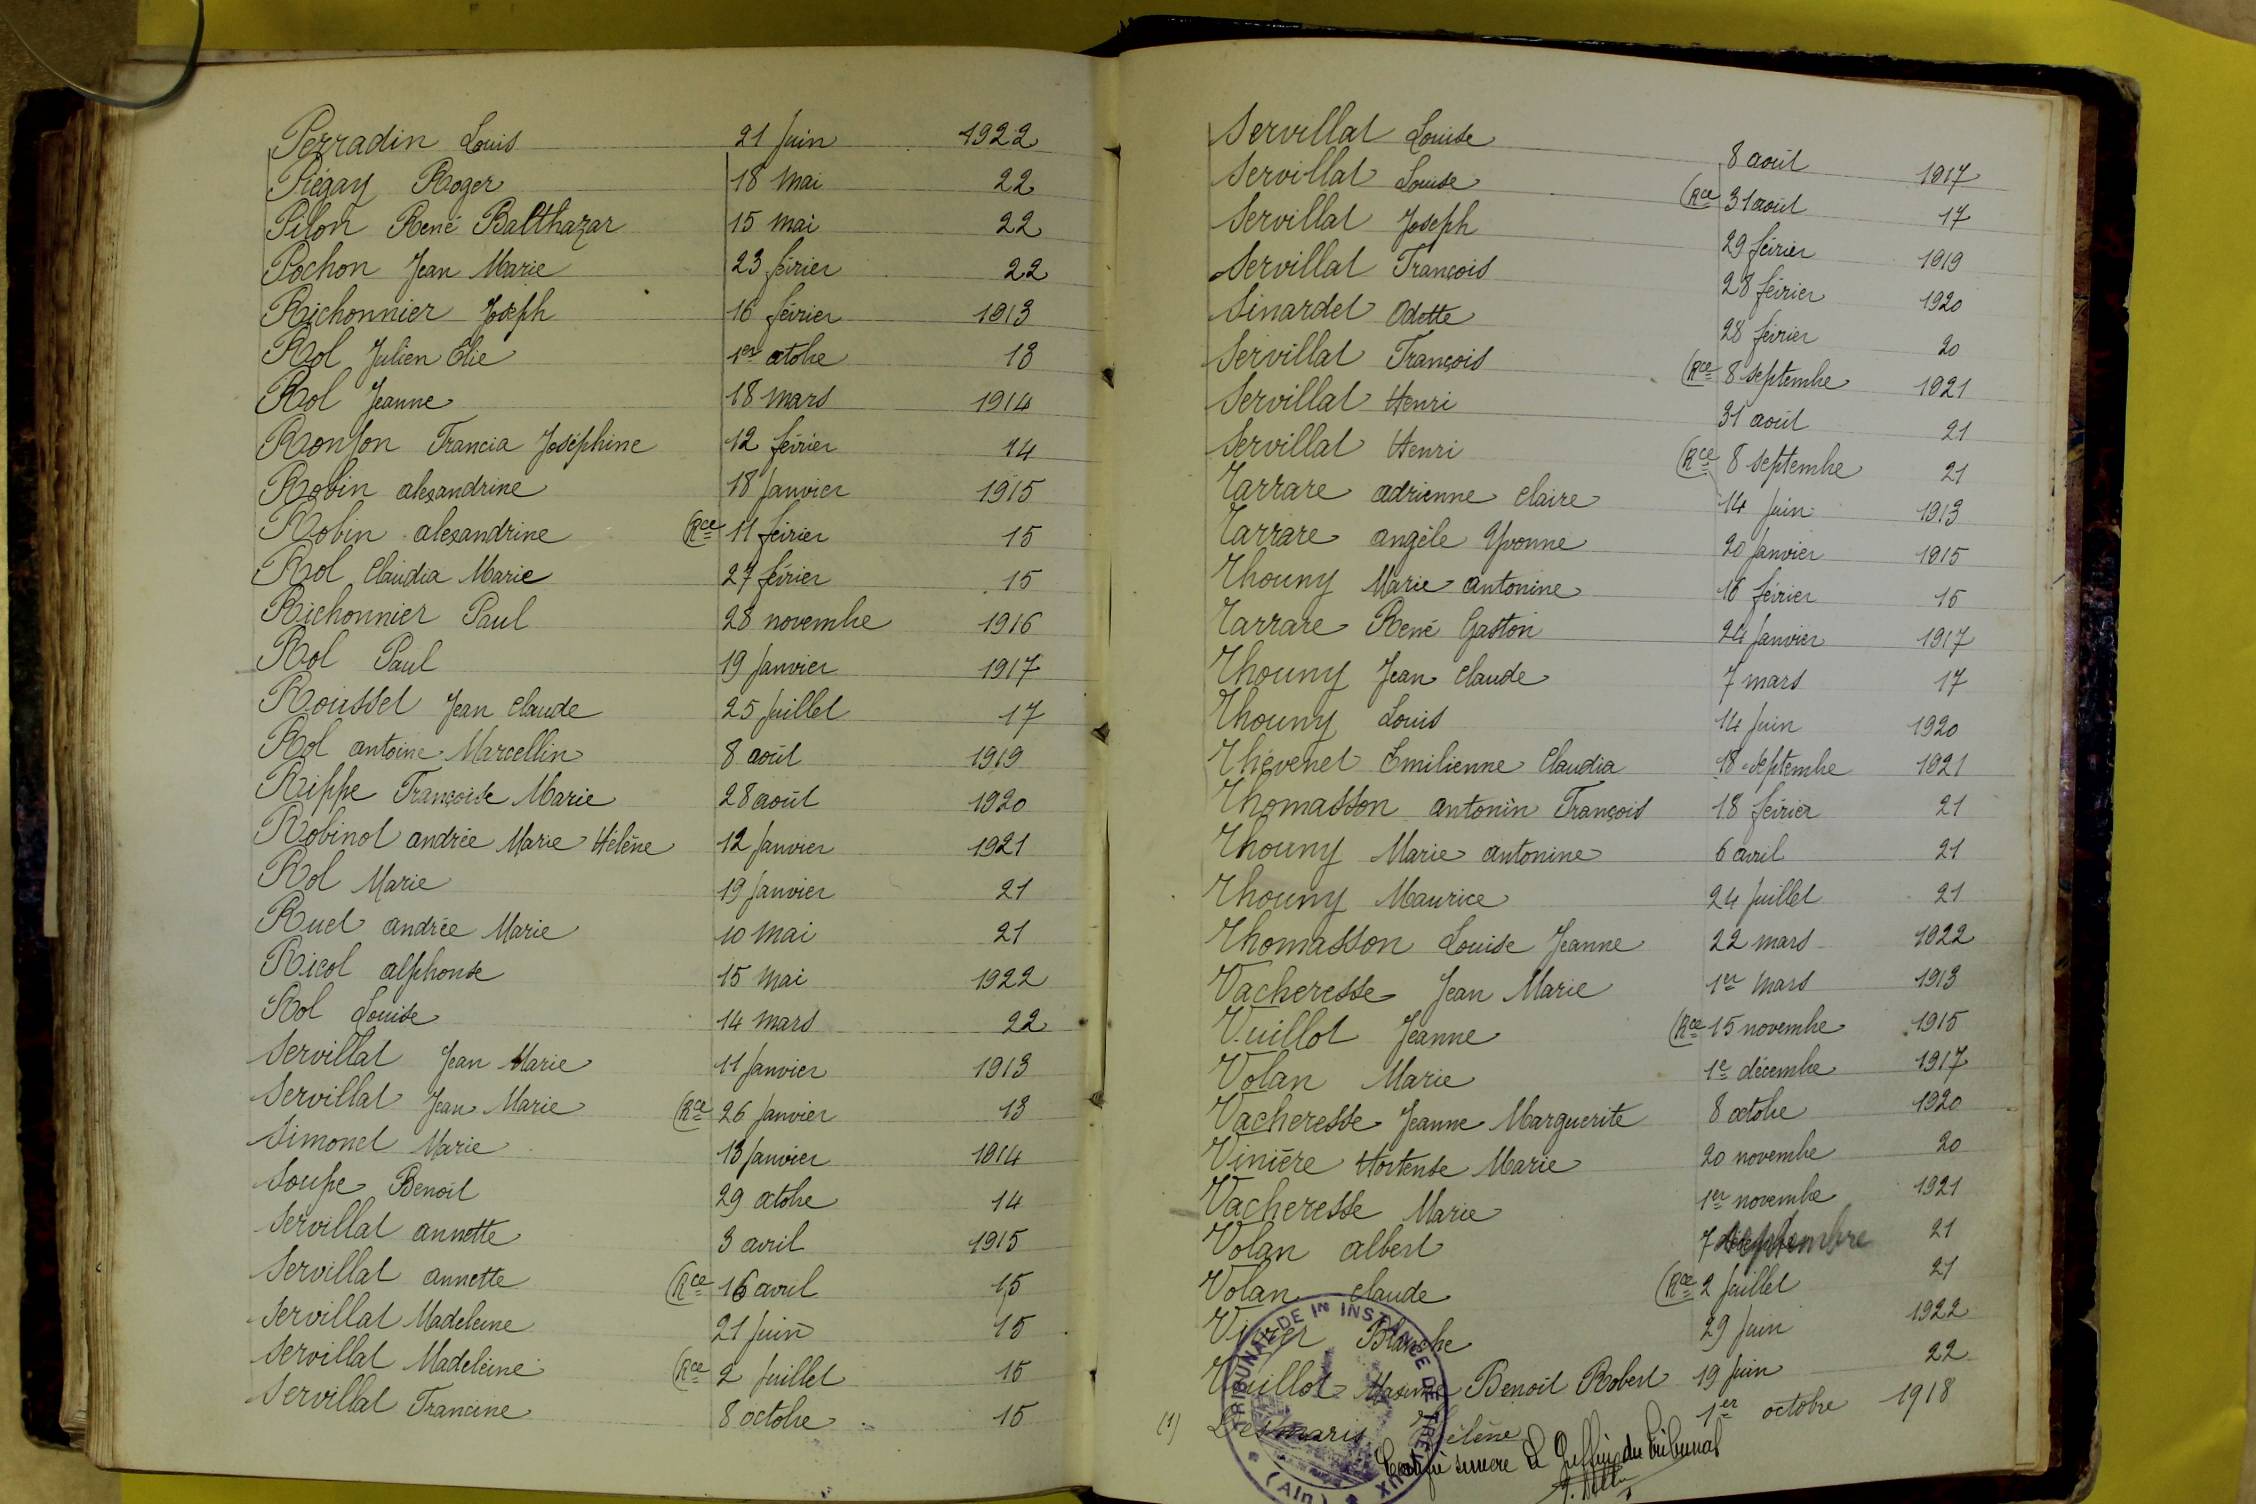 Perradin Louis 21 juin 1922
Piégay Roger 18 mai 22
Pilon René Balthazar 15 mai 22
Pochon Jean Marie 23 février 22
Richonnier Joseph 16 février 1913
Rol Julien Élie 1er octobre 13
Rol Jeanne 18 mars 1914
Ronjon Francia Joséphine 12 février 14
Robin alexandrine 18 janvier 1915
Robin alexandrine (Rce 11 février 15
Rol Claudia Marie 27 février 15
Richonnier Paul 28 novembre 1916
Rol Paul 19 janvier 1917
Rousset Jean Claude 25 juillet 17
Rol antoine Marcellin 8 août 1919
Rippe Françoise Marie 28 août 1920
Robinot andrée Marie Hélène 12 janvier 1921
Rol Marie 19 janvier 21
Ruet andrée Marie 10 mai 21
Ricol alphonse 15 mai 1922
Rol Louise 14 mars 22
Servillat Jean Marie 11 janvier 1913
Servillat Jean Marie (Rce 26 janvier 13
Simonet Marie 13 janvier 1914
Soupe Benoit 29 octobre 14
Servillat annette 3 avril 1915
Servillat annette (Rce 16 avril 15
Servillat Madeleine 21 juin 15
Servillat Madeleine (Rce 2 juillet 15
Servillat Francine 8 octobre 15
Servillat Louise 8 août 1917
Servillat Louise (Rce 31 août 17
Servillat Joseph 29 février 1919
Servillat François 28 février 1920
Sinardet Odette 28 février 20
Servillat François (Rce 8 septembre 1921
Servillat Henri 31 août 21
Servillat Henri (Rce 8 septembre 21
Tarrare adrienne Claire 14 juin 1913
Tarrare angèle Yvonne 20 janvier 1915
Thouny Marie antonine 16 février 15
Tarrare René Gaston 24 janvier 1917
Thouny Jean Claude 7 mars 17
Thouny Louis 14 juin 1920
Thévenet Emilienne Claudia 18 septembre 1921
Thomasson antonin François 18 février 21
Thouny Marie antonine 6 avril 21
Thouny Maurice 24 juillet 21
Thomasson Louise Jeanne 22 mars 1922
Vacheresse Jean Marie 1er mars 1913
Vuillot Jeanne (Rce 15 novembre 1915
Volan Marie 1e décembre 1917
Vacheresse Jeanne Marguerite 8 octobre 1920
Vinière Hortense Marie 20 novembre 20
Vacheresse Marie 1er novembre 1921
Volan albert 7 septembre 21
Volan claude (Rce 2 juillet 21
Blanche 29 juin 1922
Vuillot Maxime Benoit Robert 19 juin 22
(1) Desmaris Hélène 1er octobre 1918
Certifié sincère Le Greffier du tribunal
TRIBUNAL DE 1re INSTANCE DE TRÉVOUX
(Ain)